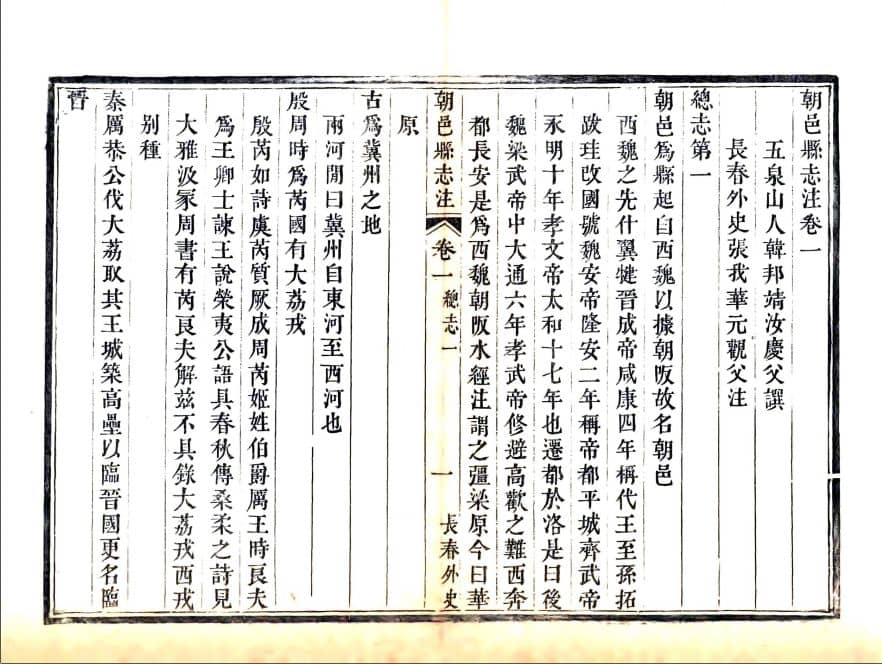 朝邑縣志注卷一
五泉山人韓邦靖汝慶父譔
長春外史張我華元觀父注
總志第一
朝邑爲縣起自西魏以據朝阪故名朝邑
西魏之先什翼犍晉成帝咸康四年稱代王至孫拓
跋珪改國號魏安帝隆安二年稱帝都平城齊武帝
永明十年孝文帝太和十七年也遷都於洛是曰後
魏梁武帝中大通六年孝武帝修避高歡之難西奔
都長安是爲西魏朝阪水經注謂之彊梁原今曰華
朝邑縣志注 卷一 總志 一 一 長春外史
原
古爲冀州之地
兩河閒曰冀州自東河至西河也
殷周時爲芮國有大荔戎
殷芮如詩虞芮質厥成周芮姬姓伯爵厲王時良夫
爲王卿士諫王說榮夷公語具春秋傳桑柔之詩見
大雅汲冢周書有芮良夫解茲不具錄大荔戎西戎
别種
秦厲恭公伐大荔取其王城築高壘以臨晉國更名臨
晉